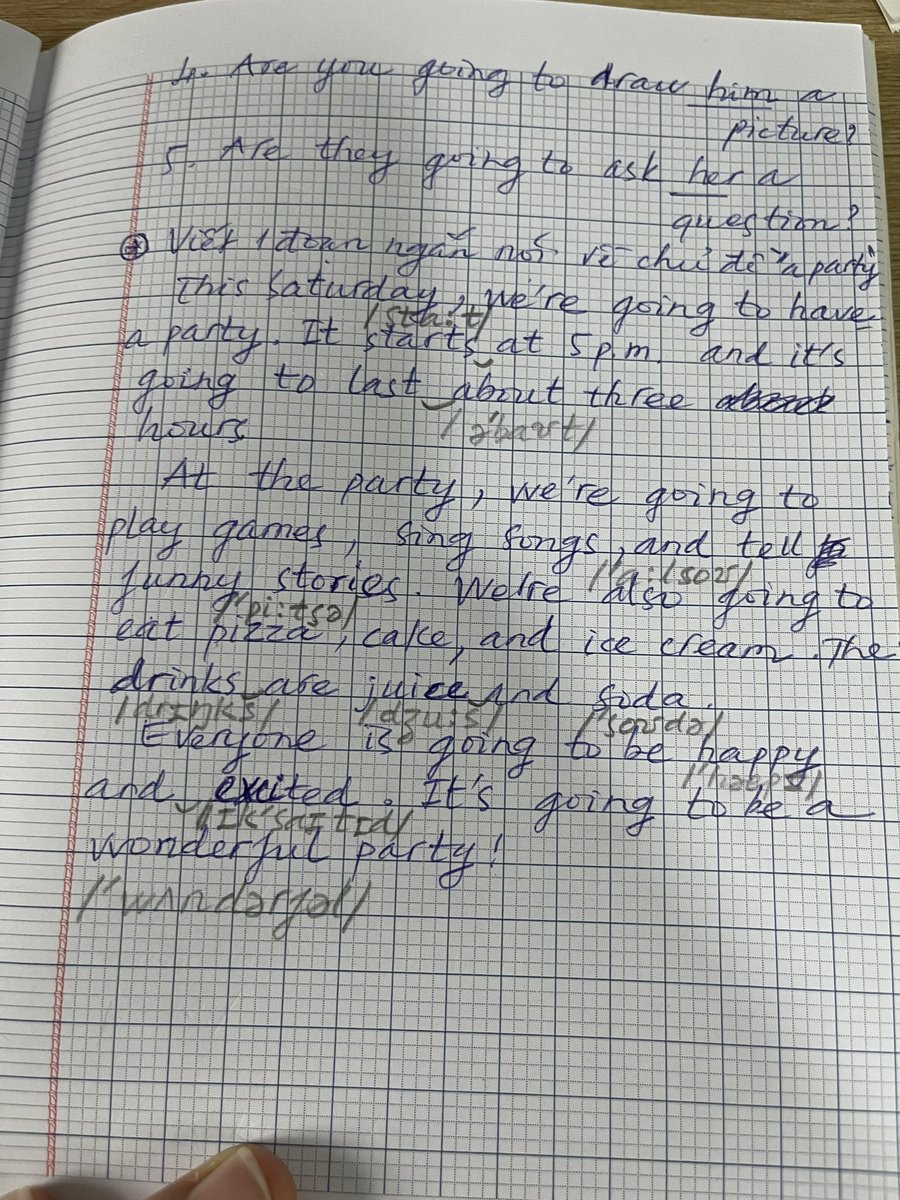 4. Are you going to draw him a
picture?
5. Are they going to ask her a
question?
* Viết 1 đoạn ngắn nói về chủ đề "a party"
This Saturday, we're going to have
/sta:t/
a party. It starts at 5 p.m. and it's
going to last about three
hours
/ə'baʊt/
At the party, we're going to
play games, sing songs, and tell
funny stories. We're also going to
/'pi:tsə/
eat pizza, cake, and ice cream. The
drinks are juice and soda.
/drɪŋks/ /dʒu:s/ /'soʊdə/
Everyone is going to be happy
and excited. It's going to be a
/ɪk'saɪtɪd/
wonderful party!
/'wʌndərfəl/